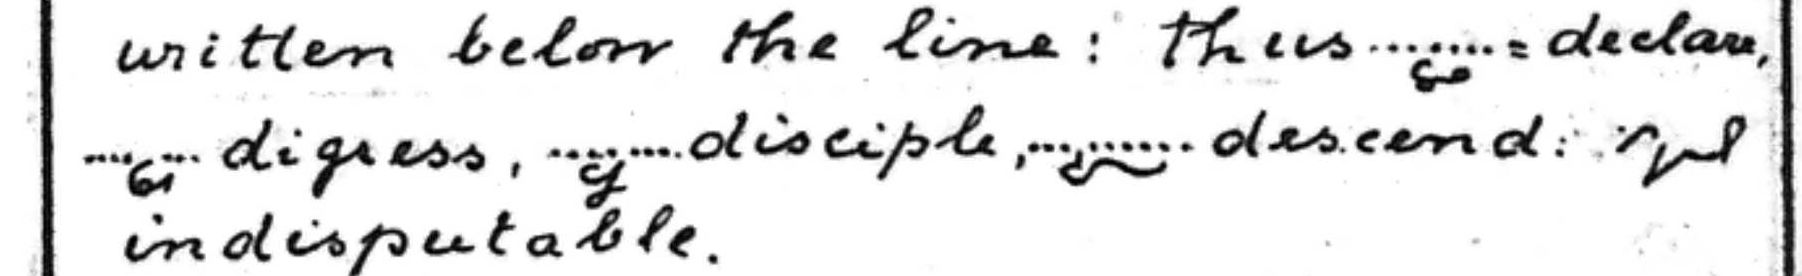 written below the line: thus ........ = declare,
........ digress, ........ disciple, ........ descend:
indisputable.